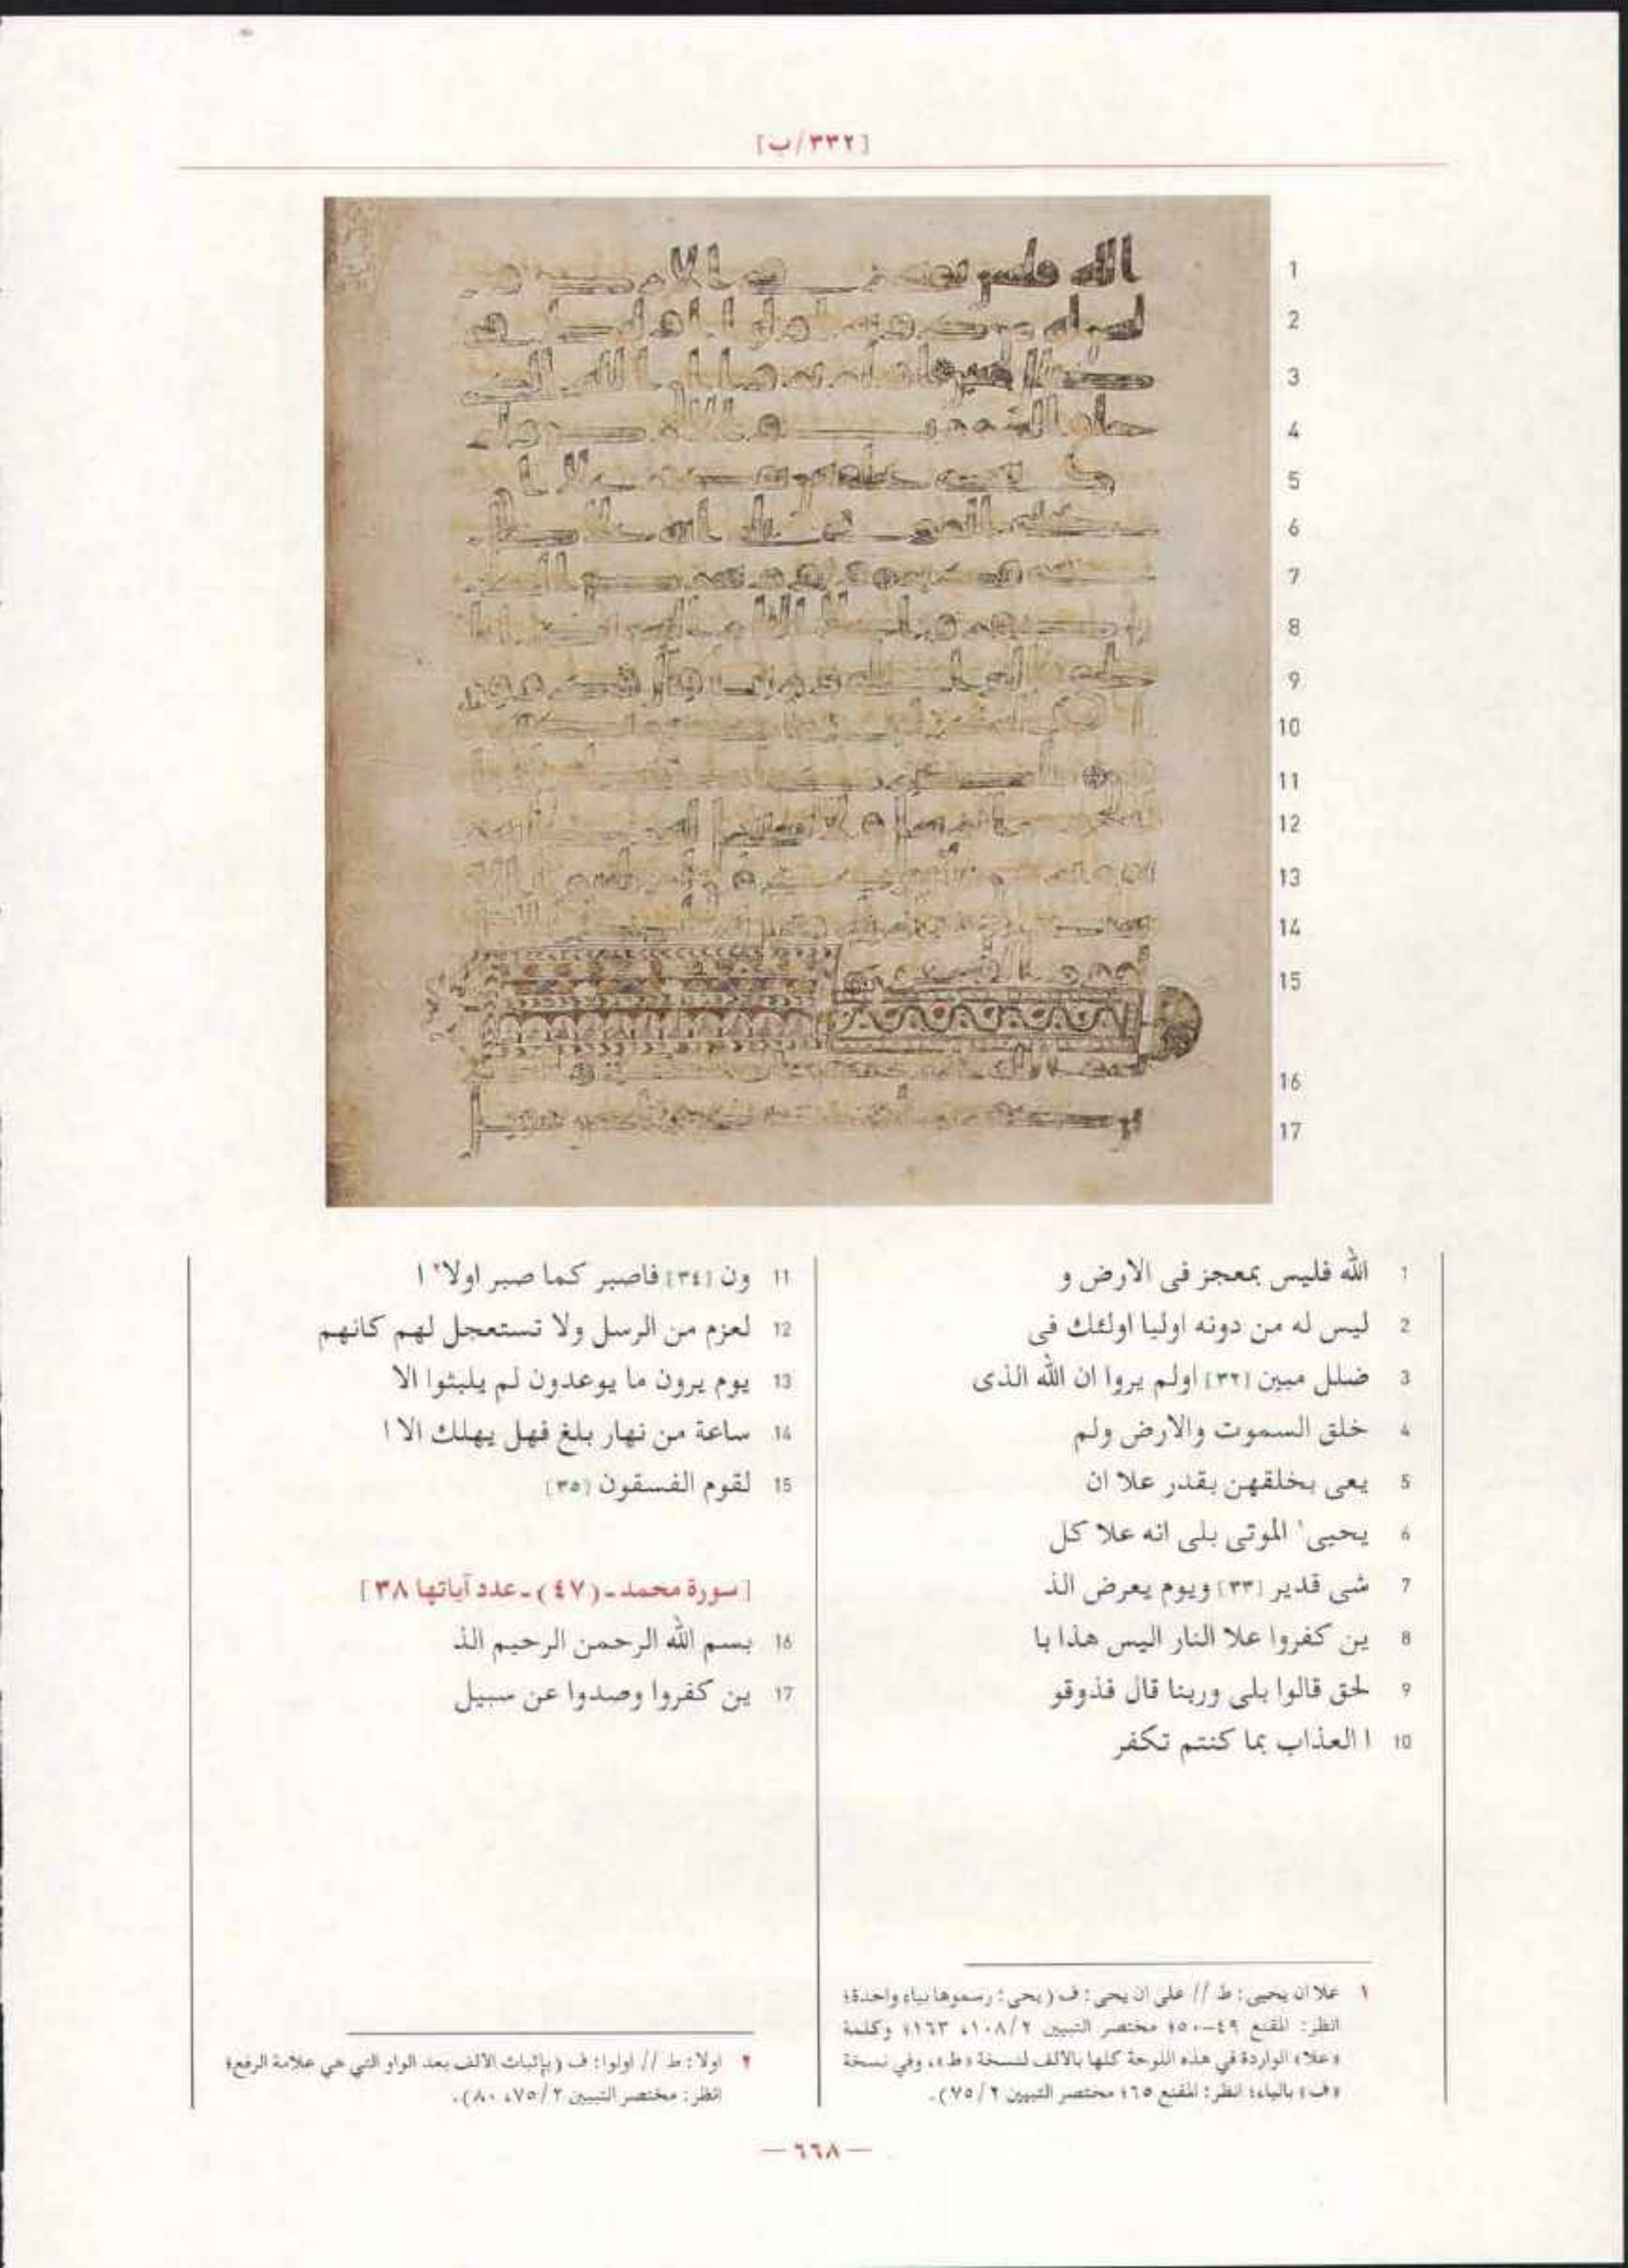 [٣٣٢/ب]
1 الله فليس بمعجز فى الارض و
2 ليس له من دونه اوليا اولئك فى
3 ضلل مبين [٣٢] اولم يروا ان الله الذى
4 خلق السموت والارض ولم
5 يعى بخلقهن بقدر علا ان
6 يحيى١ الموتى بلى انه علا كل
7 شى قدير [٣٣] ويوم يعرض الذ
8 ين كفروا علا النار اليس هذا با
9 لحق قالوا بلى وربنا قال فذوقو
10 ا العذاب بما كنتم تكفر
11 ون [٣٤] فاصبر كما صبر اولا٢ ا
12 لعزم من الرسل ولا تستعجل لهم كانهم
13 يوم يرون ما يوعدون لم يلبثوا الا
14 ساعة من نهار بلغ فهل يهلك الا ا
15 لقوم الفسقون [٣٥]
[سورة محمد ـ (٤٧) ـ عدد آياتها ٣٨]
16 بسم الله الرحمن الرحيم الذ
17 ين كفروا وصدوا عن سبيل
١ علا ان يحيى: ط // على ان يحى: ف (يحى: رسموها بياء واحدة؛
انظر: المقنع ٤٩-٥٠؛ مختصر التبيين ١٠٨/٢، ١٦٣)؛ وكلمة
«علا» الواردة في هذه اللوحة كلها بالألف لنسخة «ط»، وفي نسخة
«ف» بالياء؛ انظر: المقنع ٦٥؛ مختصر التبيين ٧٥/٢).
٢ اولا: ط // اولوا: ف (بإثبات الألف بعد الواو التي هي علامة الرفع؛
انظر: مختصر التبيين ٧٥/٢، ٨٠).
— ٦٦٨ —